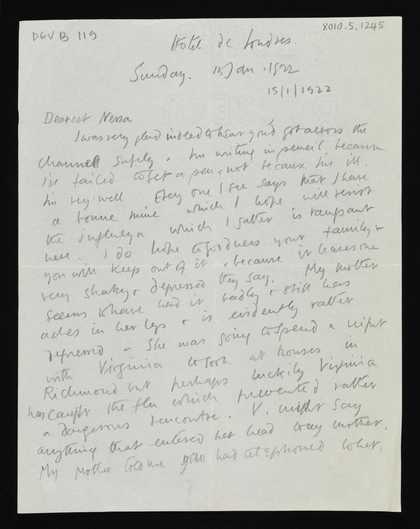 DGV B 119
8010.5.1245
Hotel de Londres.
Sunday. 15 Jan. 1922
15/1/1922
Dearest Nessa
I was very glad indeed to hear you'd got across the
channel safely. I'm writing in pencil, because
I've failed to get a pen, not because I'm ill.
I'm very well. Every one I see says that I have
a bonne mine which I hope will resist
the influenza which I gather is rampant
here. I do hope to goodness your family &
you will keep out of it, because it leaves one
very shaky & depressed they say. My mother
seems to have had it badly & still has
aches in her legs & is evidently rather
depressed. She was going to spend a night
with Virginia to look at houses in
Richmond but perhaps luckily Virginia
has caught the flu which prevented rather
a dangerous rencontre. V. might say
anything that entered her head to my mother.
My mother told me you had telephoned to her.